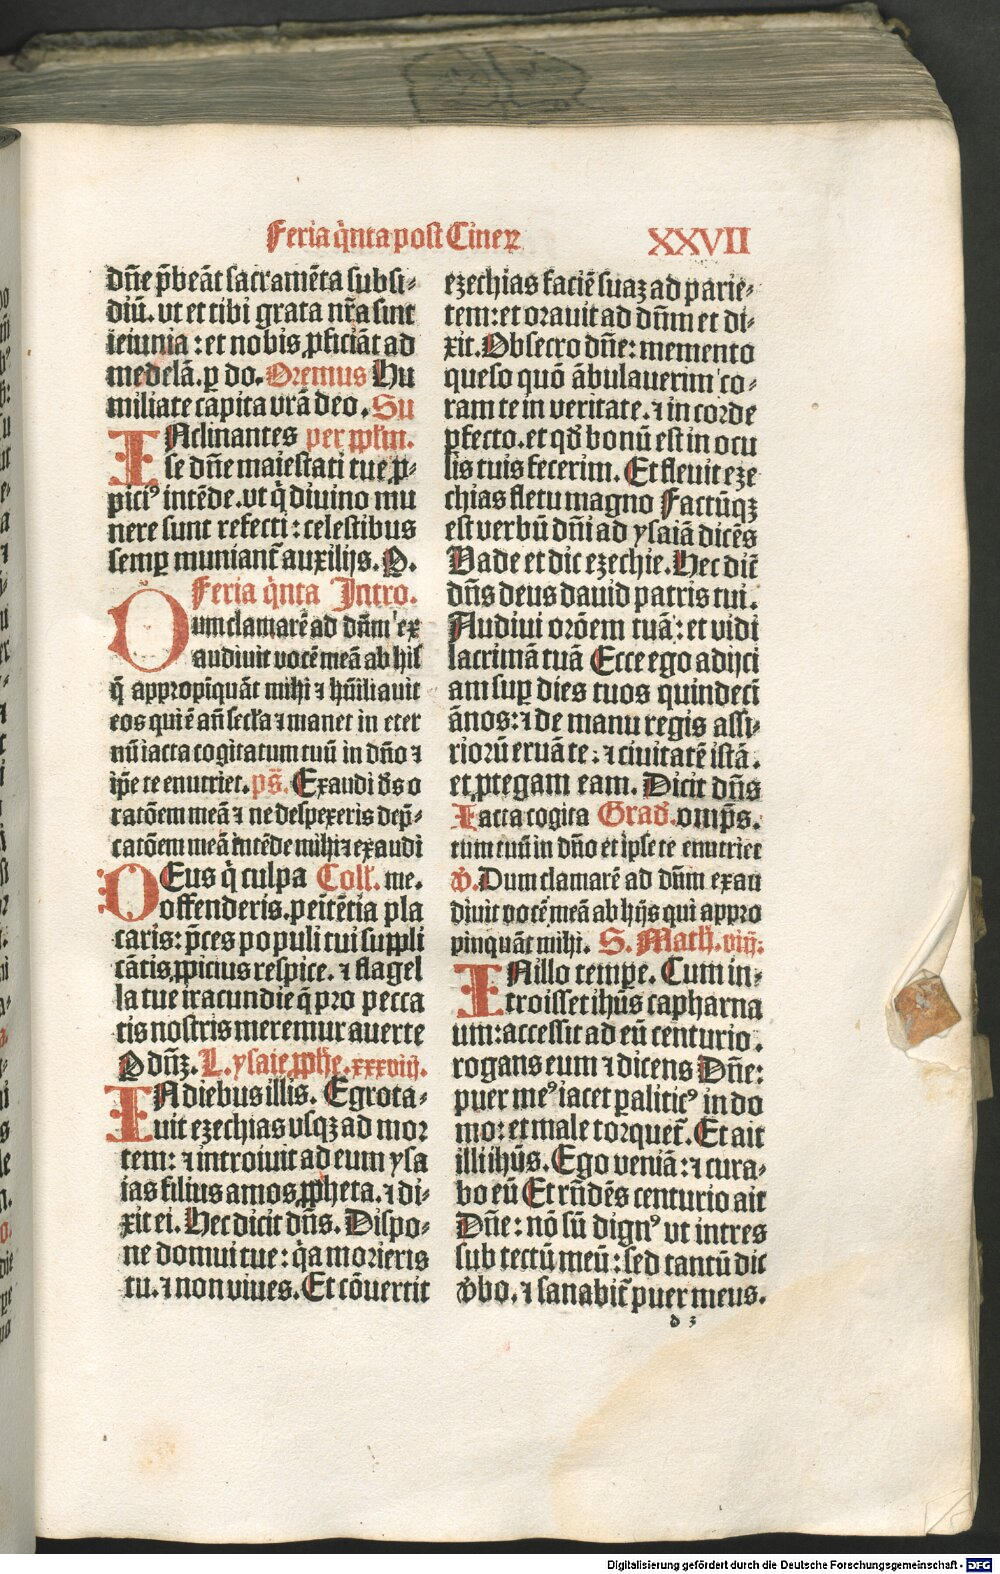 Feria q̃nta post Cineꝝ
XXVII
dñe p̃beãt sacramẽta subsi⸗
diũ. vt et tibi grata nr̃a sint
ieiunia : et nobis ꝓficiãt ad
medelã. ꝑ do. Oremus Hu
miliate capita vrã deo. Su
INclinantes per pplm̃.
se dñe maiestati tue ꝓ⸗
piciꝰ intẽde. vt q̃ diuino mu
nere sunt refecti : celestibus
semꝑ muniant᷑ auxilijs. P.
Feria q̃nta Intro.
Dum clamarẽ ad dñm ex
audiuit vocẽ meã ab his
q̃ appropiquãt mihi ⁊ hũiliauit
eos qui ẽ añ secl'a ⁊ manet in eter
nũ iacta cogitatum tuũ in dño ⁊
ip̃e te enutriet. ps̃. Exaudi ds̃ o
ratõem meã ⁊ ne despexeris dep̃⸗
catõem meã intẽde mihi ⁊ exaudi
DEus q̃ culpa Coll̃. me.
offenderis. peñtẽtia pla
caris : p̃ces populi tui suppli
cãtis ꝓpicius respice. ⁊ flagel
la tue iracundie q̃ pro pecca
tis nostris meremur auerte
P dñꝫ. L. ysaie ꝓphẽ. xxxviij.
IN diebus illis. Egrota⸗
uit ezechias vsqꝫ ad mor
tem : ⁊ introiuit ad eum ysa
ias filius amos ꝓpheta. ⁊ di⸗
xit ei. Hec dicit dñs. Dispo⸗
ne domui tue : q̃a morieris
tu. ⁊ non viues. Et cõuertit
ezechias faciẽ suaꝫ ad parie⸗
tem : et orauit ad dñm et di⸗
xit. Obsecro dñe : memento
queso quõ ãbulauerim co⸗
ram te in veritate. ⁊ in corde
ꝑfecto. et qđ bonũ est in ocu
lis tuis fecerim. Et fleuit eze
chias fletu magno Factũqꝫ
est verbũ dñi ad ysaiã dicẽs
Vade et dic ezechie. Hec dic̃
dñs deus dauid patris tui.
Audiui orõem tuã : et vidi
lacrimã tuã Ecce ego adijci
am suꝑ dies tuos quindeci
ãnos : ⁊ de manu regis assi⸗
riorũ eruã te : ⁊ ciuitatẽ istã.
et ꝓtegam eam. Dicit dñs
Iacta cogita Grad̃. omp̃s.
tum tuũ in dño et ipse te enutriet
℣. Dum clamarẽ ad dñm exau
diuit vocẽ meã ab hijs qui appro
pinquãt mihi. S. Math̃. viij.
IN illo tempe. Cum in⸗
troisset ihũs capharna
um : accessit ad eũ centurio.
rogans eum ⁊ dicens Dñe :
puer meꝰ iacet ꝑaliticꝰ in do
mo : et male torquet᷑. Et ait
illi ihũs. Ego veniã : ⁊ cura⸗
bo eũ Et rñdẽs centurio ait
Dñe : nõ sũ dignꝰ vt intres
sub tectũ meũ : sed tantũ dic
v̾bo. ⁊ sanabit᷑ puer meus.
d 3
Digitalisierung gefördert durch die Deutsche Forschungsgemeinschaft - DFG